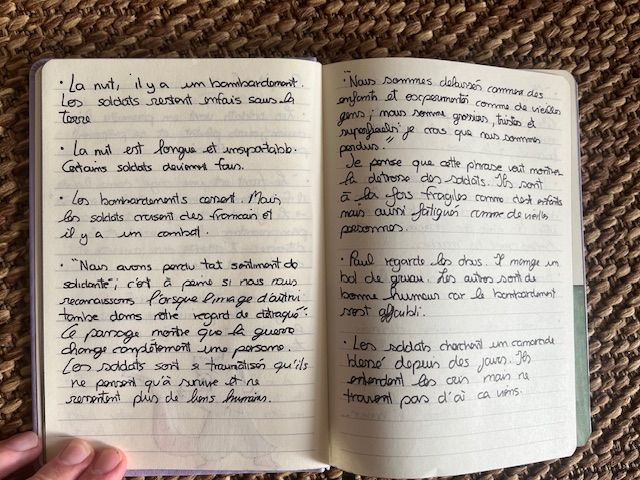 · La nuit, il y a un bombardement.
Les soldats restent enfuis sous la
terre
· La nuit est longue et insuportable.
Certains soldats deviennent fous.
· Les bombardements cessent. Mais
les soldats croisent des francais et
il y a un combat.
· "Nous avons perdu tout sentiment de
solidarité", c'est à peine si nous nous
reconnaissons lorsque l'image d'autrui
tombe dans notre regard de détraqué".
Ce passage montre que la guerre
change complètement une personne.
Les soldats sont si traumatisés qu'ils
ne pensent qu'à survivre et ne
ressentent plus de liens humains.
· "Nous sommes delaissés comme des
enfants et experimentés comme de vieilles
gens, nous somme grossiers, tristes et
superficiels je crois que nous sommes
perdus."
Je pense que cette phrase veut montrer
la détresse des soldats. Ils sont
à la fois fragiles comme des enfants
mais aussi fatigués comme de vieilles
personnes.
· Paul regarde les obus. Il mange un
bol de gruau. Les autres sont de
bonne humeur car le bombardement
s'est affaibli.
· Les soldats cherchent un camarade
blessé depuis des jours. Ils
entendent les cris mais ne
trouvent pas d'où ca viens.